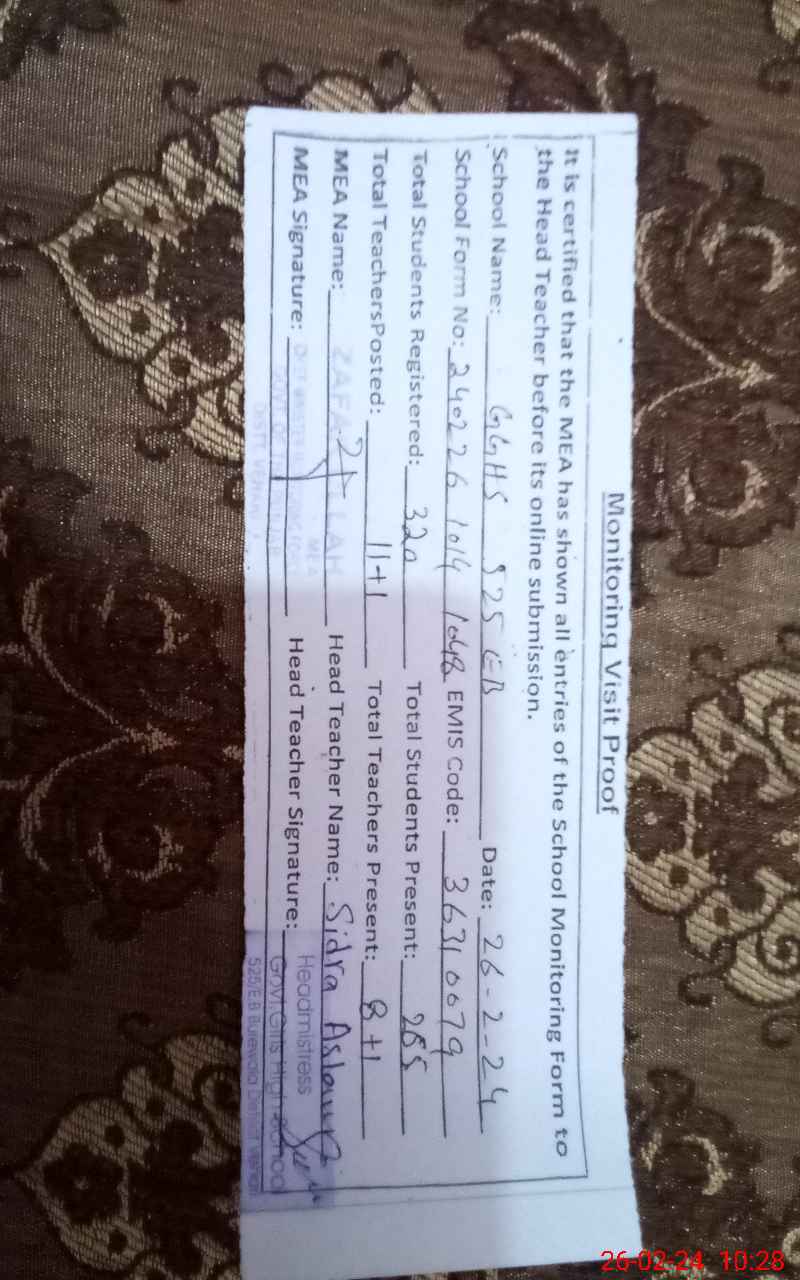 Monitoring Visit Proof
It is certified that the MEA has shown all entries of the School Monitoring Form to
the Head Teacher before its online submission.
School Name: GGHS 525 EB Date: 26-2-24
School Form No: 240226 1014 1048 EMIS Code: 36310079
Total Students Registered: 320 Total Students Present: 265
Total TeachersPosted: 11+1 Total Teachers Present: 8+1
MEA Name: ZAFAR LLAH Head Teacher Name: Sidra Aslam
MEA
Headmistress
MEA Signature: Head Teacher Signature:
GOVT. OF THE PUNJAB
Govt. Girls High School
DISTT. VEHARI
525/E.B Burewala District Vehari
26-02-24 10:28